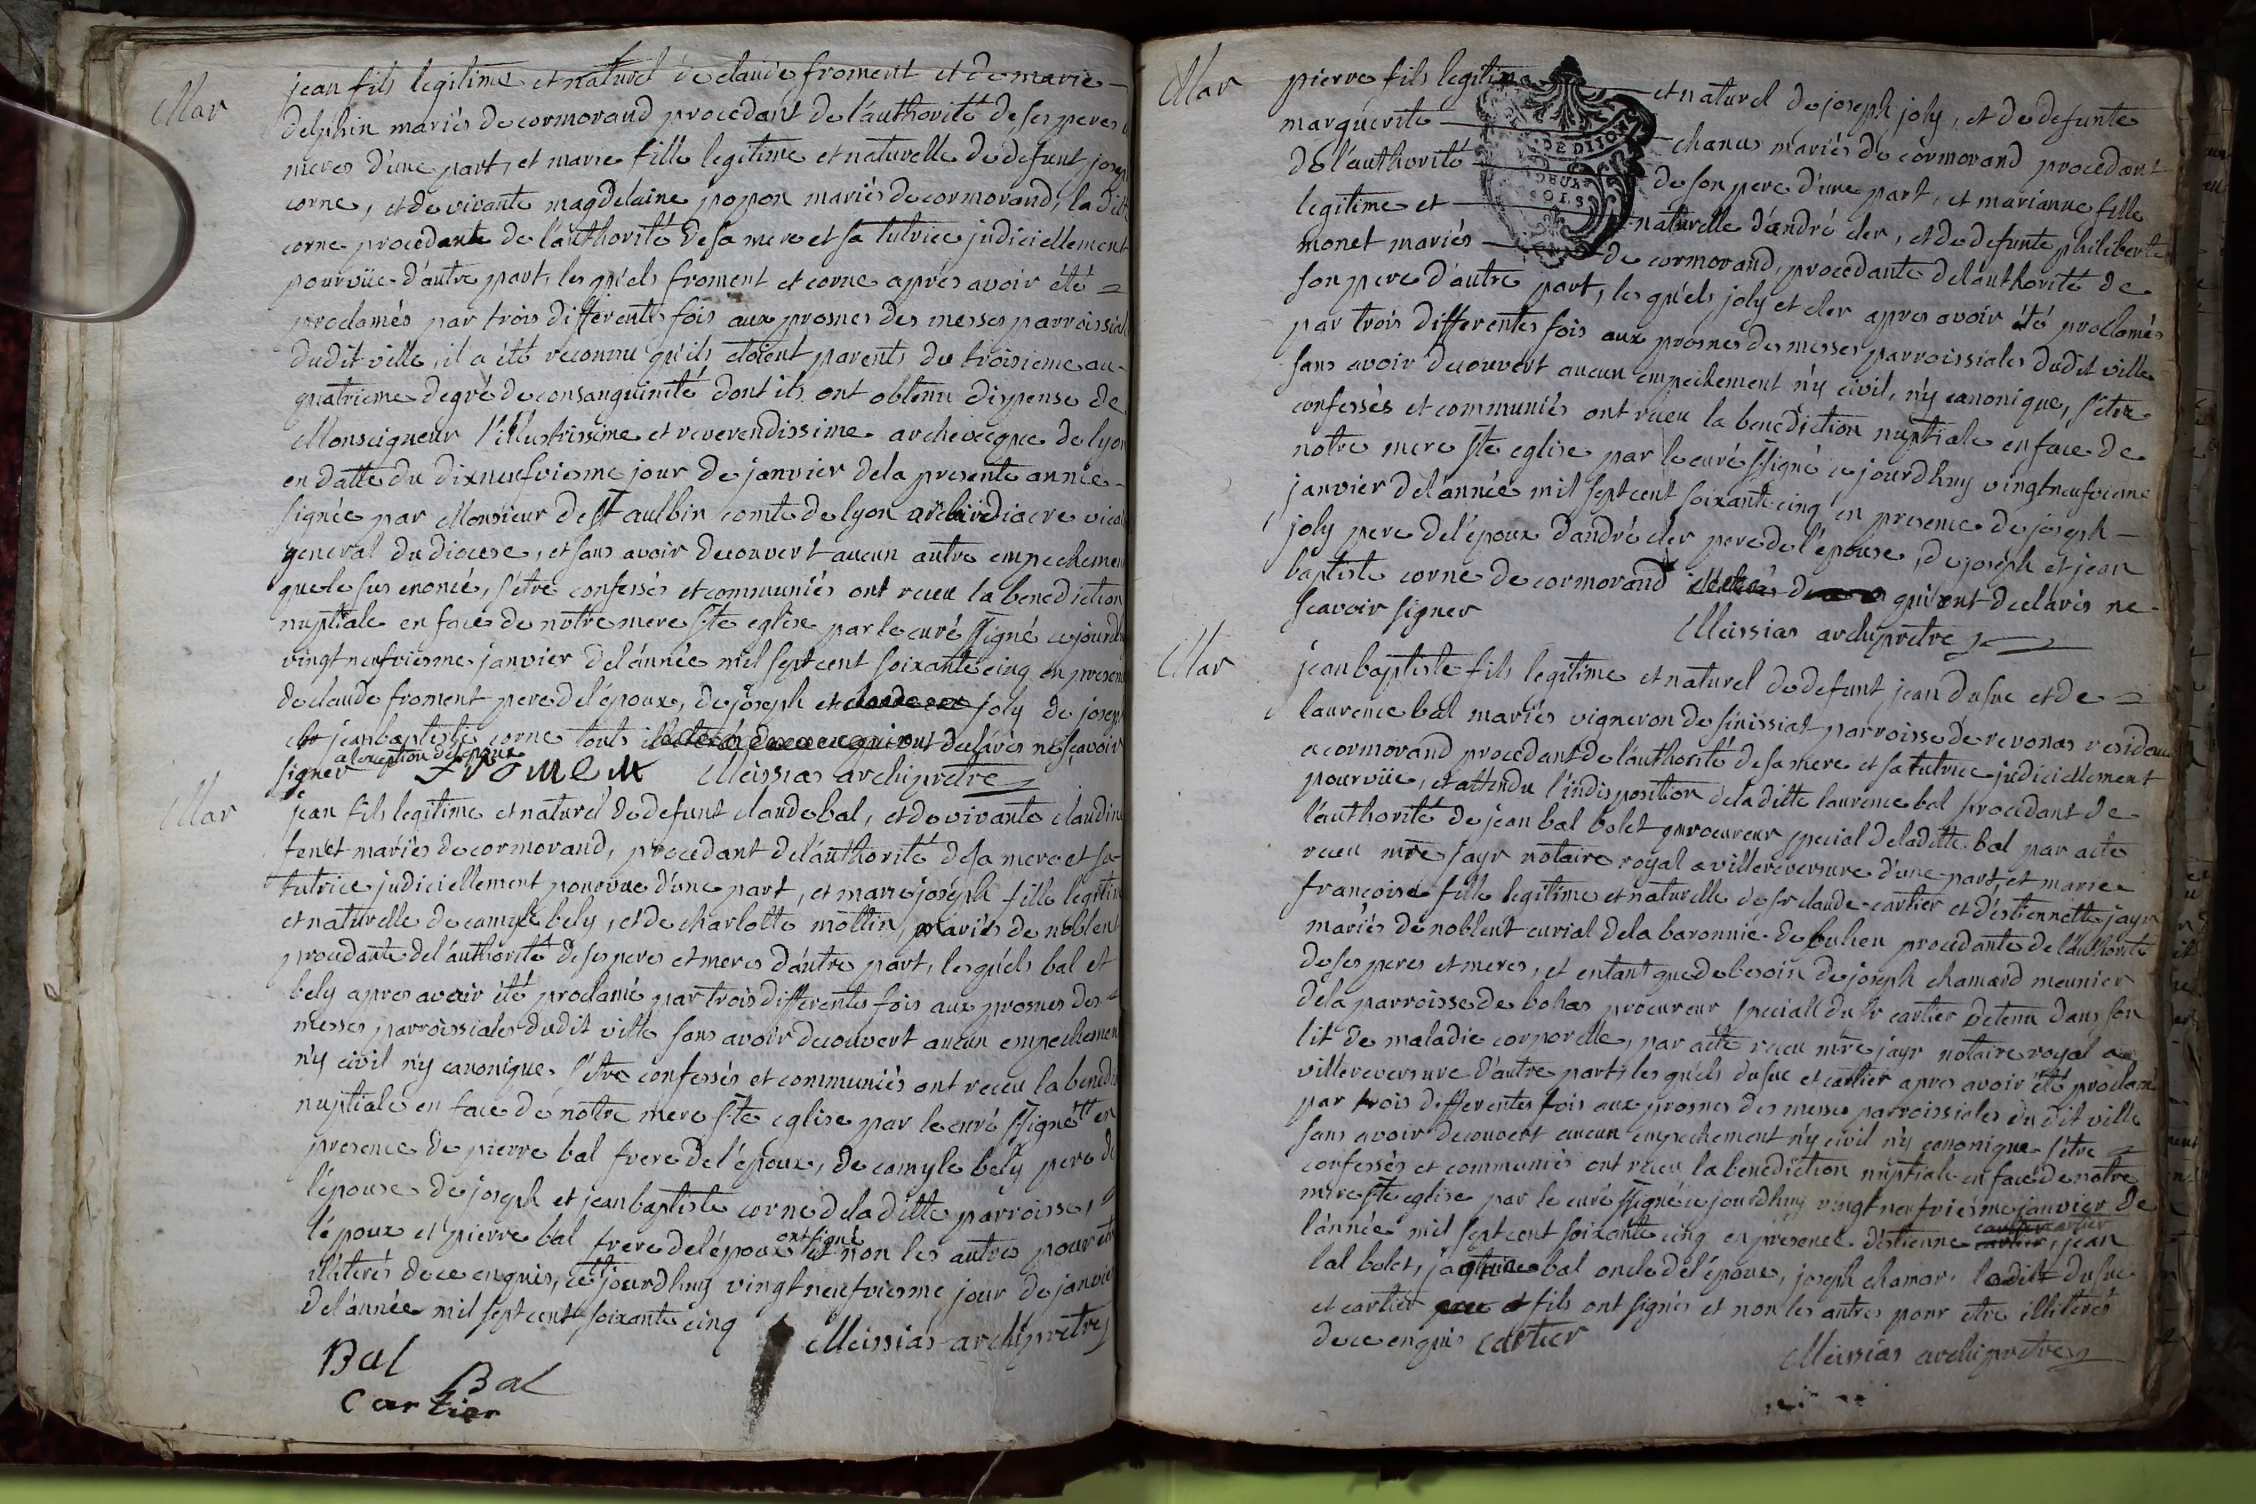 Mar
jean fils legitime et naturel de claude froment et de marie
delphin mariés de cormorand procedant de l'authorité de ses peres
meres d'une part, et marie fille legitime et naturelle de defunt joseph
corne, et de vivante magdelaine popon mariés de cormorand, la dit
corne procedante de l'authorité de sa mere et sa tutrice judiciellement
pourvüe d'autre part, les quels froment et corne apres avoir été
proclamés par trois differentes fois aux prosnes des messes parroissial
dudit ville, il a été reconnu qu'ils etoient parents du troisieme au
quatrieme degré de consanguinité dont ils ont obtenu dispense de
Monseigneur l'illustrissime et reverendissime archeveque de lyon
en datte du dixneufviesme jour de janvier de la presente année
signée par Monsieur de St aulbin comte de lyon archidiacre vicai
general du diocese, et sans avoir decouvert aucun autre empechemen
que le sus enoncé, s'être confessés et communiés ont receu la benediction
nuptiale en face de notre mere ste eglise par le curé ssigné ce jourdh
vingt neufviesme janvier de l'année mil sept cent soixante cinq en presen
de claude froment pere de l'epoux, de joseph et joly de joseph
jean baptiste corne touts qui ont declarés ne scavoir
signer a lexception de lepoux froment Meissias archiprêtre
Mar
jean fils legitime et naturel de defunt claude bal, et de vivante claudine
fenet mariés de cormorand, procedant de l'authorité de sa mere et sa
tutrice judiciellement pourvue d'une part, et marie joseph fille legitim
et naturelle de camyle bely, et de charlotte mottin, mariés de noblent
procedante de l'authorité de ses peres et meres d'autre part, les quels bal et
bely apres avoir été proclamé par trois differentes fois aux prosnes des
messes parroissiales dudit ville sans avoir decouvert aucun empechemen
n'y civil n'y canonique. s'être confessés et communiés ont receu la benedi
nuptiale en face de notre mere ste eglise par le curé ssigné en
presence de pierre bal frere de l'époux, de camyle bely pere de
l'épouse de joseph et jean baptiste corne de la ditte parroisse,
l'époux et pierre bal frere de l'époux ont signé et non les autres pour etre
illiterés de ce enquis, ce jourdhuy vingt neufviesme jour de janvier
de l'année mil sept cent soixante cinq Meissias archiprêtre
Bal
Bal
Cartier
Mar
pierre fils legitime et naturel de joseph joly, et de defunte
marguerite chanus mariés de cormorand procedant
de l'authorité de son pere d'une part, et marianne fille
legitime et naturelle d'andré cler, et de defunte philiberte
monet mariés de cormorand, procedante de l'authorité de
son pere d'autre part, les quels joly et cler apres avoir été proclamés
par trois differentes fois aux prosnes des messes parroissiales dudit ville
sans avoir decouvert aucun empechement n'y civil, n'y canonique, s'etre
confessés et communiés ont receu la benediction nuptiale en face de
notre mere ste eglise par le curé ssigné ce jourdhuy vingt neufviesme
janvier de l'année mil sept cent soixante cinq en presence de joseph
joly pere de l'époux d'andré cler pere de l'épouse, de joseph et jean
baptiste corne de cormorand qui ont declarés ne
scavoir signer
Meissias archiprêtre
Mar
jean baptiste fils legitime et naturel de defunt jean dufuc et de
laurence bal mariés vigneron de sinissiat parroisse de revonas residan
a cormorand procedant de l'authorité de sa mere et sa tutrice judiciellement
pourvüe, et attendu l'indisposition de la ditte laurence bal procedant de
l'authorité de jean bal bolet procureur special de la ditte bal par acte
receu mre jayr notaire royal a villereversure d'une part, et marie
françoise fille legitime et naturelle de sr claude cartier et d'estiennette jayr
mariés de noblent curial de la baronnie de buhen procedante de l'authorité
de ses peres et meres, et entant que de besoin de joseph chamard meunier
de la parroisse de bohas procureur speciall du sr cartier detenu dans son
lit de maladie corporelle, par acte receu mre jayr notaire royal a
villereversure d'autre part, les quels dufuc et cartier apres avoir été proclamé
par trois differentes fois aux prosnes des messes parroissiales du dit ville
sans avoir decouvert aucun empechement n'y civil n'y canonique s'être
confessés et communiés ont receu la benediction nuptiale en face de notre
mere ste eglise par le curé ssigné ce jourdhuy vingt neufviesme janvier de
l'année mil sept cent soixante cinq en presence d'estienne cartier, jean
bal bolet, bal oncle de l'époux, joseph chamar, ladit dufuc
et cartier fils ont signés et non les autres pour etre illiterés
de ce enquis cartier
Meissias archiprêtre